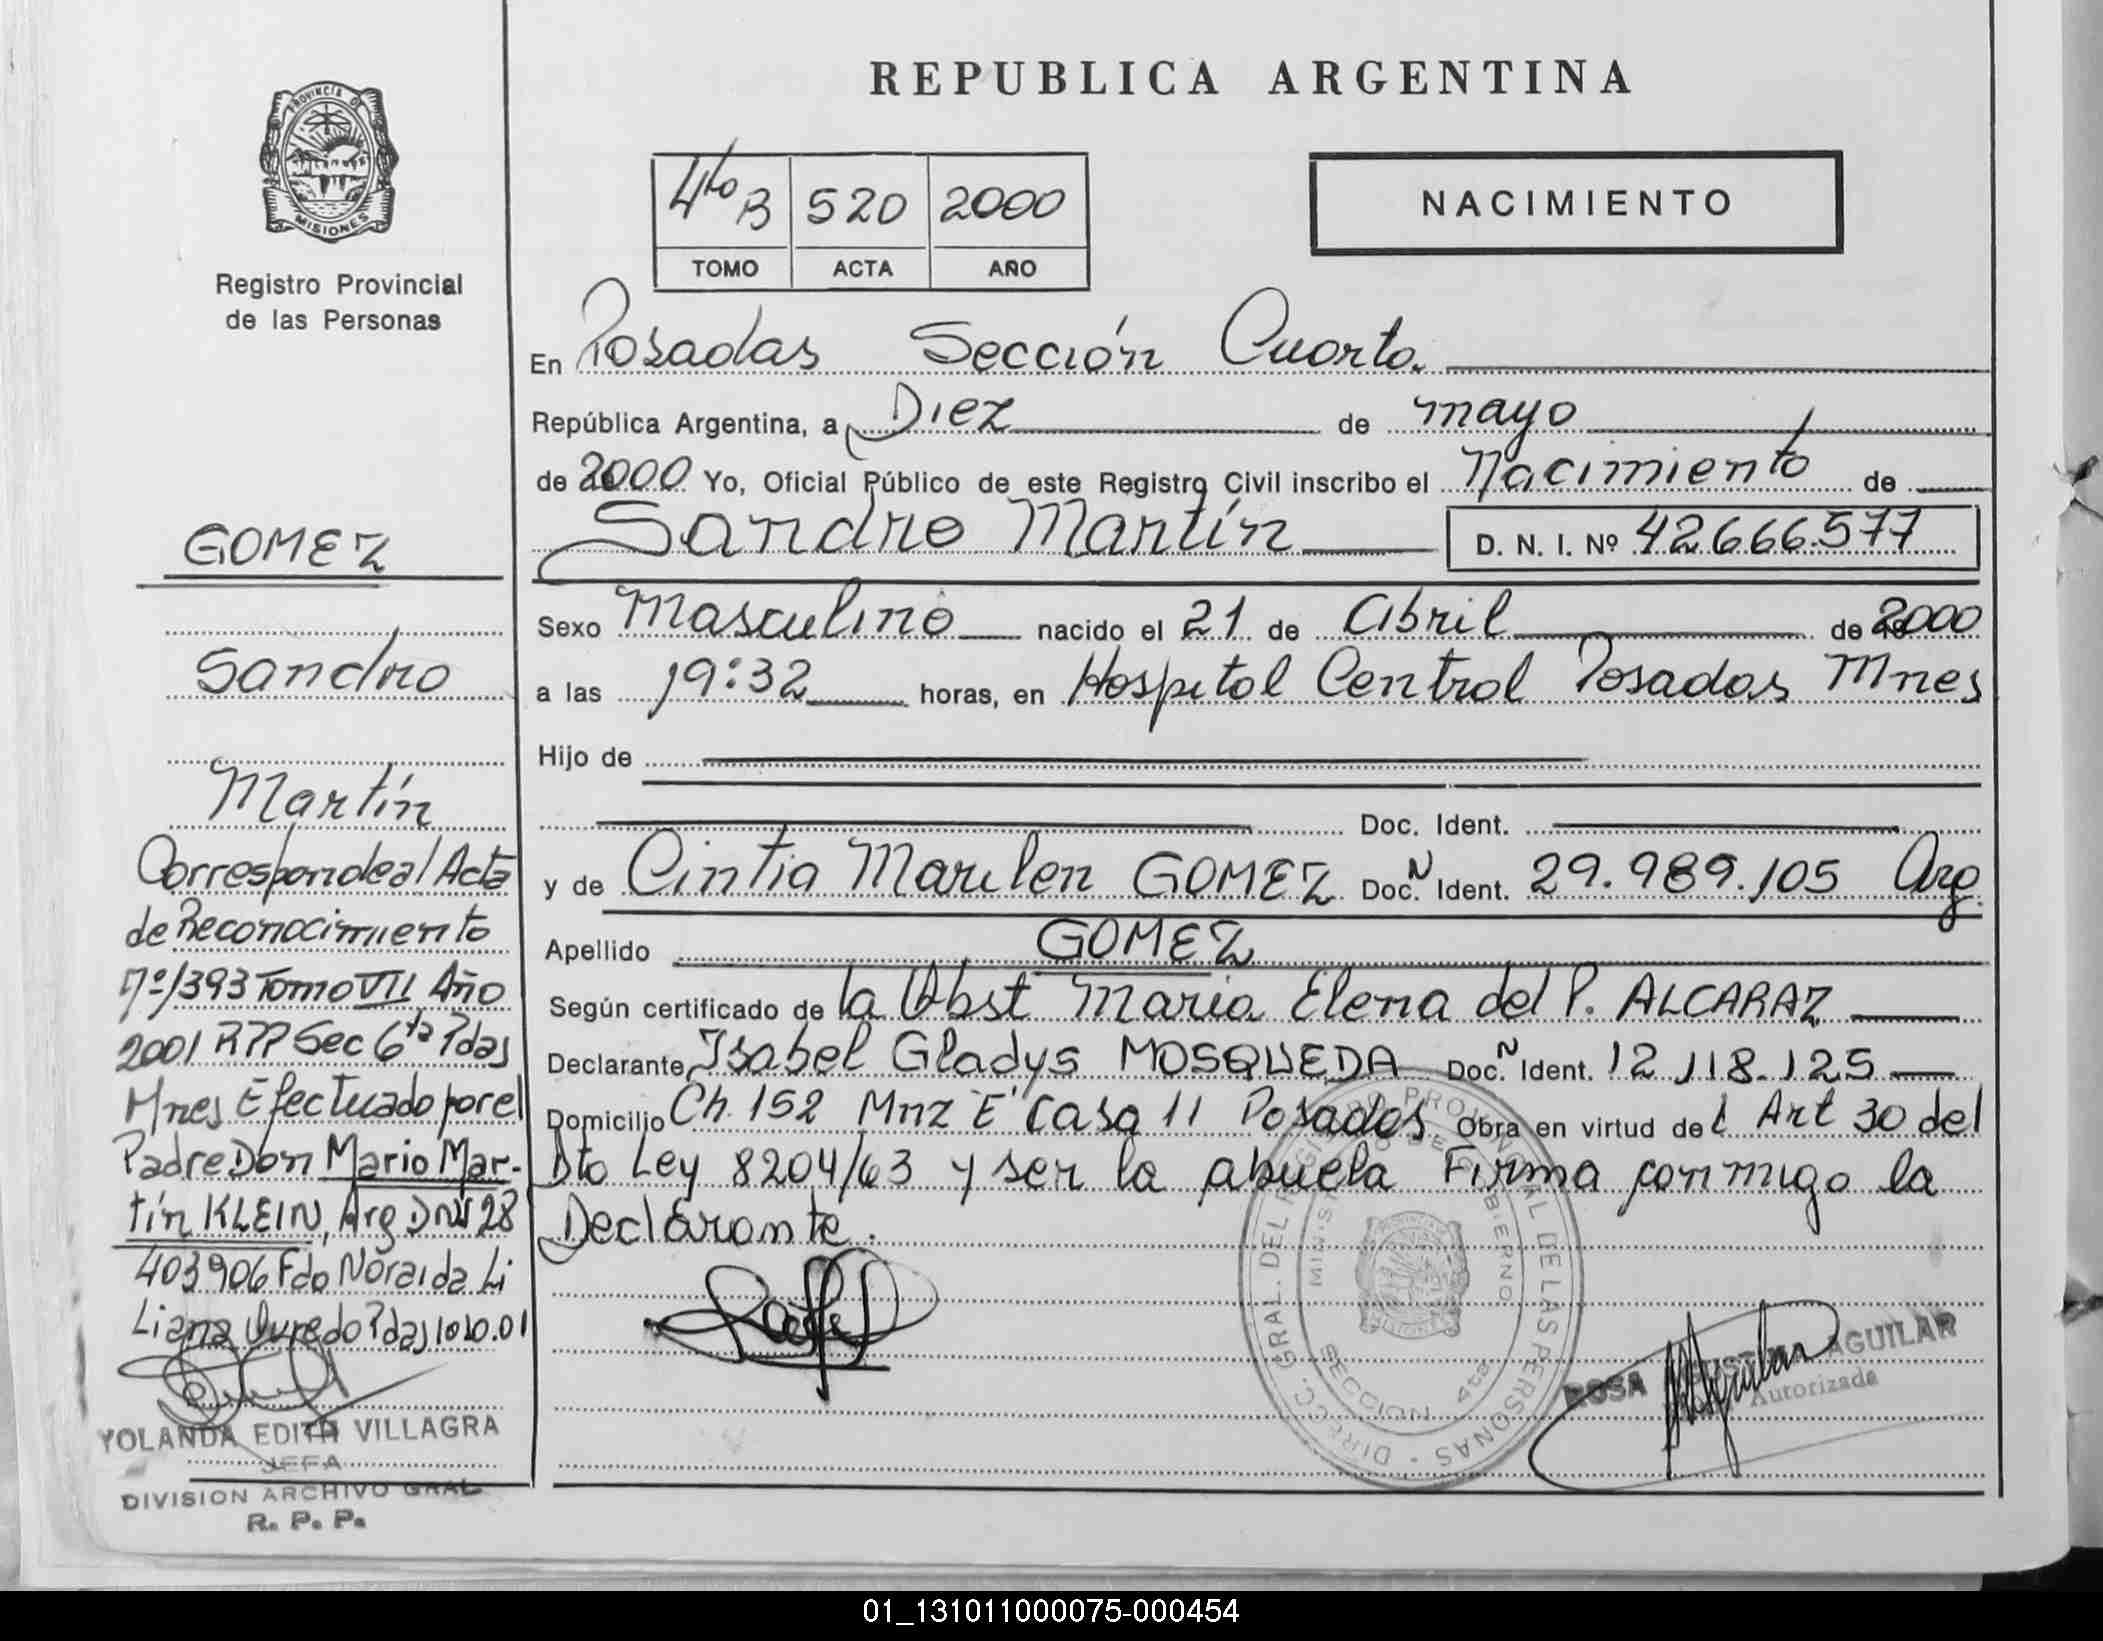 REPUBLICA ARGENTINA
PROVINCIA DE
MISIONES
Registro Provincial
de las Personas
4to B 520 2000
TOMO ACTA AÑO
NACIMIENTO
En Posadas Sección Cuarta.
República Argentina, a Diez de mayo
de 2000 Yo, Oficial Público de este Registro Civil inscribo el Nacimiento de
Sandro Martín D. N. I. Nº 42.666.577
Sexo Masculino nacido el 21 de Abril de 2000
a las 19:32 horas, en Hospital Central Posadas Mnes
Hijo de
Doc. Ident.
y de Cintia Marilen GOMEZ Doc. N Ident. 29.989.105 Arg.
Apellido GOMEZ
Según certificado de la Obst Maria Elena del P. ALCARAZ
Declarante Isabel Gladys MOSQUEDA Doc. N Ident. 12.118.125
Domicilio Ch. 152 Mnz "E" Casa 11 Posadas Obra en virtud del Art 30 del
Dto Ley 8204/63 y ser la abuela Firma conmigo la
Declarante.
GOMEZ
Sandro
Martín
Corresponde al Acta
de Reconocimiento
Nº 1393 Tomo VII Año
2001 RPP Sec 6ta Pdas
Mnes Efectuado por el
Padre Don Mario Mar-
tín KLEIN, Arg DNI 28
403906 Fdo Noraida Li
Liana Pdas 10.10.01
YOLANDA EDITH VILLAGRA
JEFA
DIVISION ARCHIVO GRAL
R. P. P.
DIRECC. GRAL. DEL REGISTRO PROVINCIAL DE LAS PERSONAS
MINISTERIO DE GOBIERNO
SECCION 4ta
ROSA AGUILAR
Autorizada
01_131011000075-000454